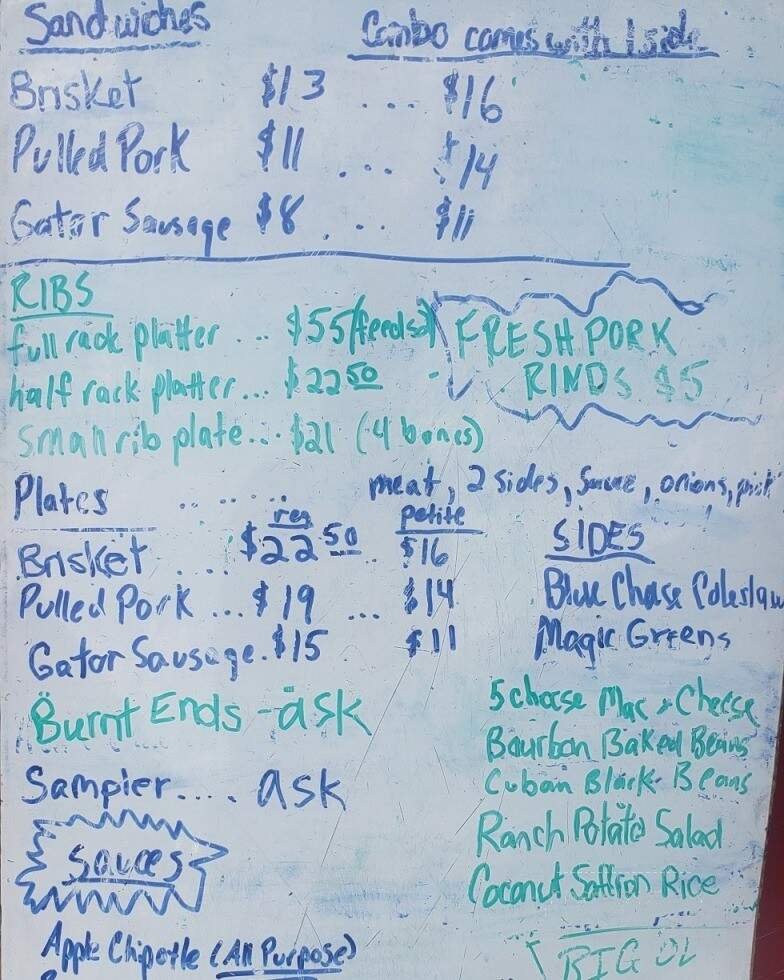 Sandwiches Combo comes with 1 side
Brisket $13 ... $16
Pulled Pork $11 ... $14
Gator Sausage $8 ... $11
RIBS
full rack platter ... $55 (feeds
half rack platter... $22 50
small rib plate... $21 (4 bones)
FRESH PORK
RINDS $5
Plates ....... meat, 2 sides, sauce, onions,
reg petite
Brisket .... $22 50 .. $16
Pulled Pork ... $19 ... $14
Gator Sausage. $15 $11
Burnt Ends - ask
Sampler.... ask
SIDES
Blue Chese Coleslaw
Magic Greens
5 cheese Mac & Cheese
Bourbon Baked Beans
Cuban Black Beans
Ranch Potato Salad
Coconut Saffron Rice
Sauces
Apple Chipotle (All Purpose)
BIG OL